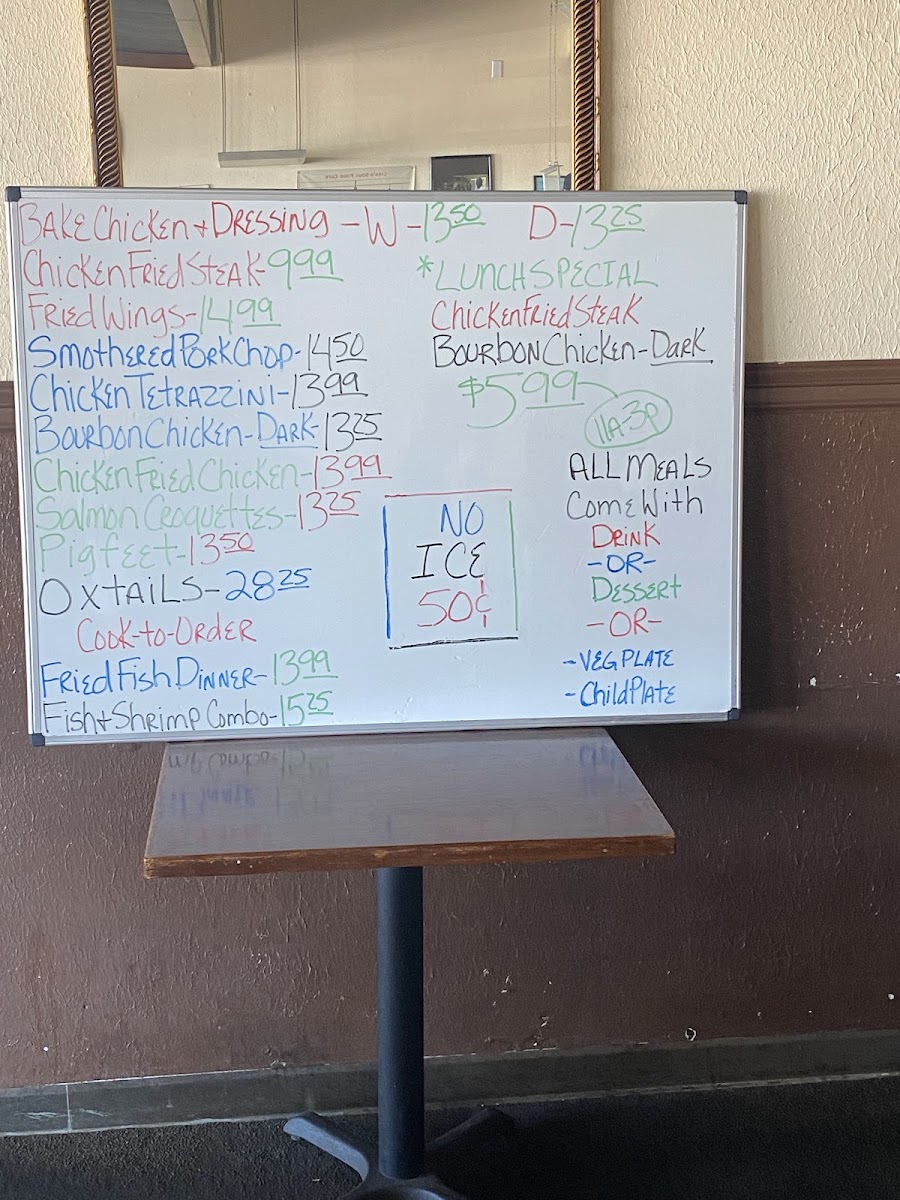 BAKE Chicken + DRESSING - W - 13⁵⁰ D - 13²⁵
Chicken Fried Steak - 9⁹⁹
Fried Wings - 14⁹⁹
Smothered Pork Chop - 14⁵⁰
Chicken Tetrazzini - 13⁹⁹
Bourbon Chicken - Dark - 13²⁵
Chicken Fried Chicken - 13⁹⁹
Salmon Croquettes - 13²⁵
Pigfeet - 13⁵⁰
Oxtails - 28²⁵
Cook-to-Order
Fried Fish Dinner - 13⁹⁹
Fish + Shrimp Combo - 15²⁵
*LUNCH SPECIAL
Chicken Fried Steak
Bourbon Chicken - Dark
$5⁹⁹
11A-3P
NO
ICE
50¢
ALL Meals
Come With
Drink
-OR-
Dessert
-OR-
-VEG PLATE
-Child Plate